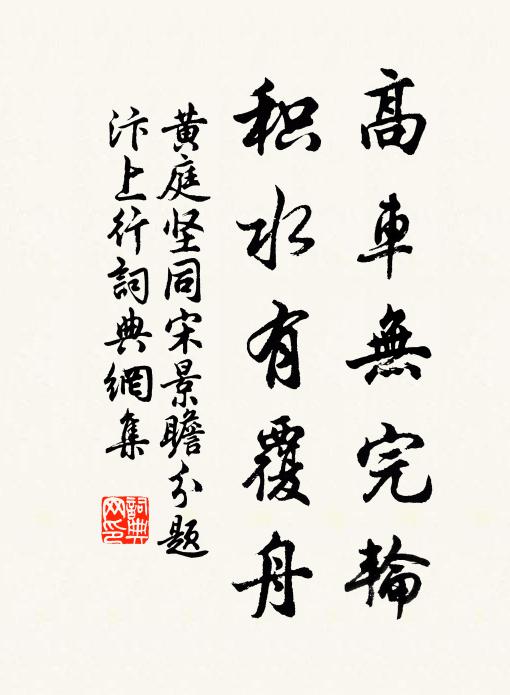 高車無完輪
积水有覆舟
黄庭坚同宋景瞻分题
汴上行詞典網集
詞典网印